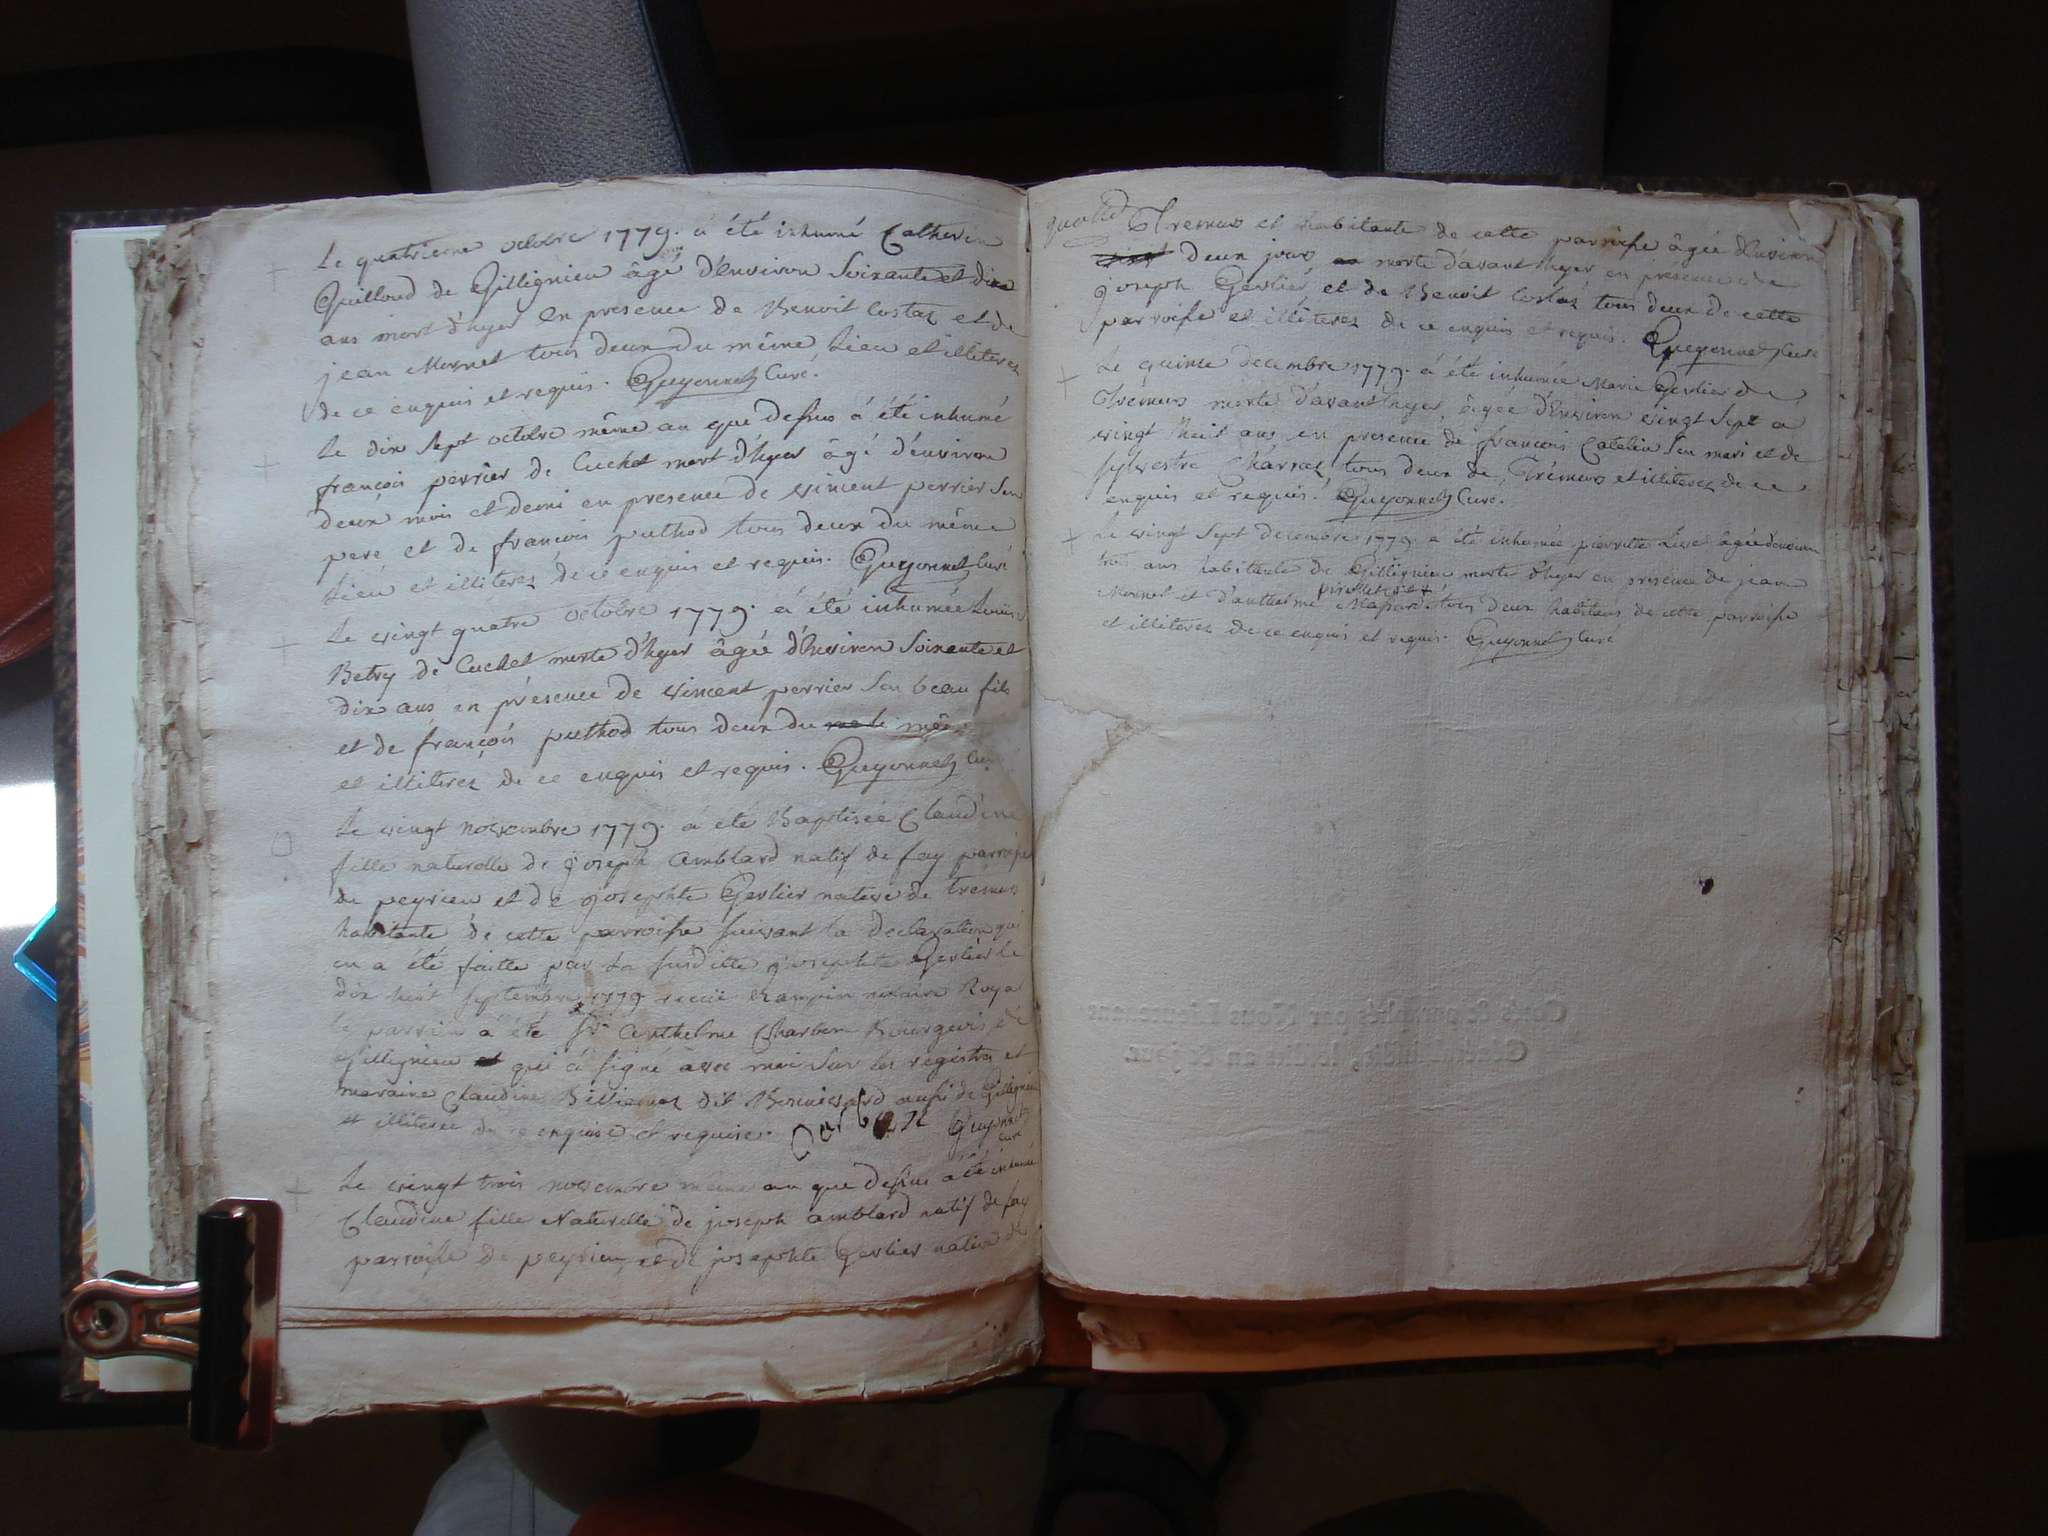 Le quatrieme octobre 1779. a été inhumé Catherin
Guilloud de Gillignieu âgé d'Environ Soixante et dix
ans mort d'hyer en presence de Benoit Costaz et de
jean Mornet tous deux du même Lieu et illiterez
de ce enquis et requis. Guyonnet Curé.
Le dix Sept octobre même an que dessus a été inhumé
françois perrier de Cuchet mort d'hyer âgé d'environ
deux mois et demi en presence de vincent perrier Son
pere et de francois puthod tous deux du même
Lieu et illiterez de ce enquis et requis. Guyonnet Curé
Le vingt quatre octobre 1779. a été inhumée Louise
Betry de Cuchet morte d'hyer âgée d'Environ Soixante et
dix ans en présence de vincent perrier Son beau fils
et de françois puthod tous deux du même
et illiterez de ce enquis et requis. Guyonnet Curé
Le vingt novembre 1779. a été Baptisée Claudine
fille naturelle de joseph Amblard natif de fay parroisse
de peyrieu et de josephte Gerlier native de Tremurs
habitante de cette parroisse suivant la declaration qui
en a été faitte par la susditte josephte Gerlier le
dix huit septembre 1779 recüe Champin notaire Royal
le parrain a été Sr. Anthelme Charben Bourgeois de
Gillignieu qui a signé avec moi sur les registres et
maraine Claudine Billiemaz dit Bonnissard aussi de Gillignieu
et illiterée de ce enquise et requise. Guyonnet
Curé
Le vingt trois novembre même an que dessus a été inhumée
Claudine fille Naturelle de joseph amblard natif de fay
parroisse de peyrieu et de josephte Gerlier native de
Tremurs et habitante de cette parroisse âgée d'Environ
deux jours morte d'avant hyer en présence de
joseph Gerlier et de Benoit Costaz tous deux de cette
parroisse et illiterez de ce enquis et requis. Guyonnet Curé
Le quinze decembre 1779. a été inhumée Marie Gerlier de
Tremurs morte d'avant hyer, âgée d'Environ vingt Sept a
vingt huit ans en presence de françois Catelin Son mari et de
sylvestre Charvet tous deux de Trémurs et illiterez de ce
enquis et requis. Guyonnet Curé.
Le vingt Sept decembre 1779. a été inhumée pierrette âgée d'environ
trois ans habitante de Gillignieu morte d'hyer en presence de jean
Mornet et d'anthelme tous deux habitans de cette parroisse
et illiterez de ce enquis et requis. Guyonnet Curé